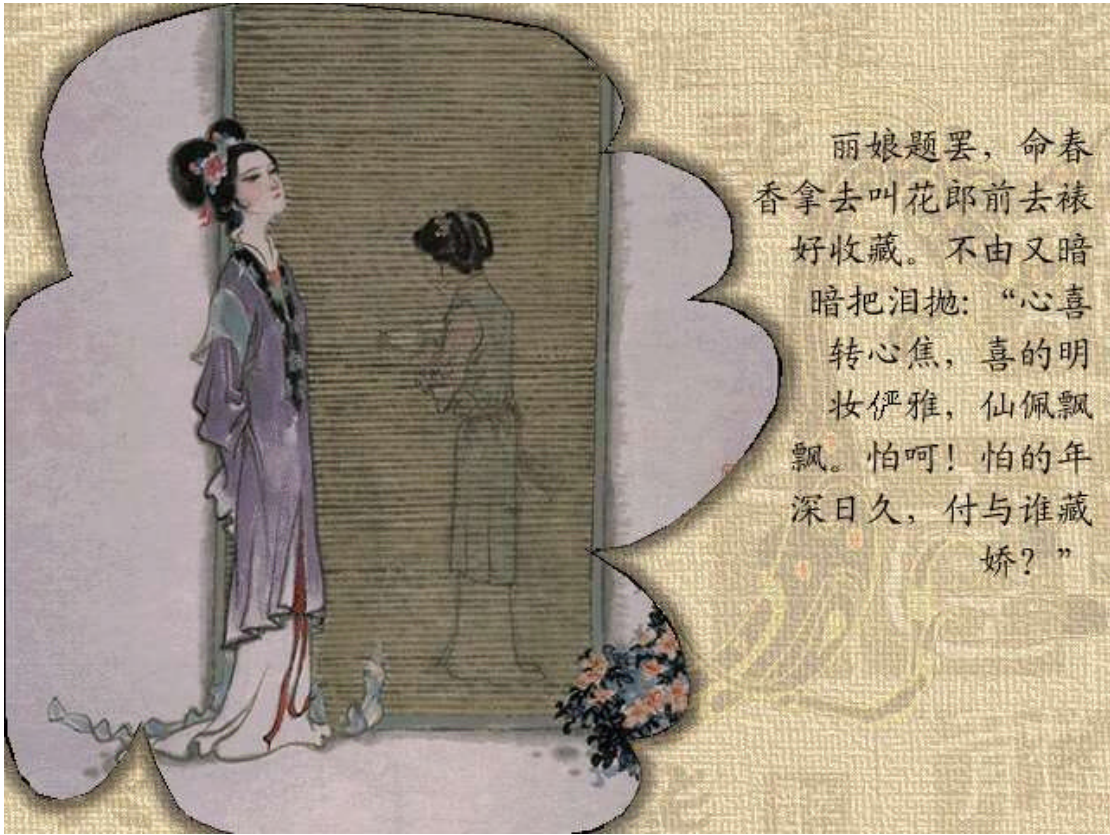 丽娘题罢，命春
香拿去叫花郎前去裱
好收藏。不由又暗
暗把泪抛：“心喜
转心焦，喜的明
妆俨雅，仙佩飘
飘。怕呵！怕的年
深日久，付与谁藏
娇？”